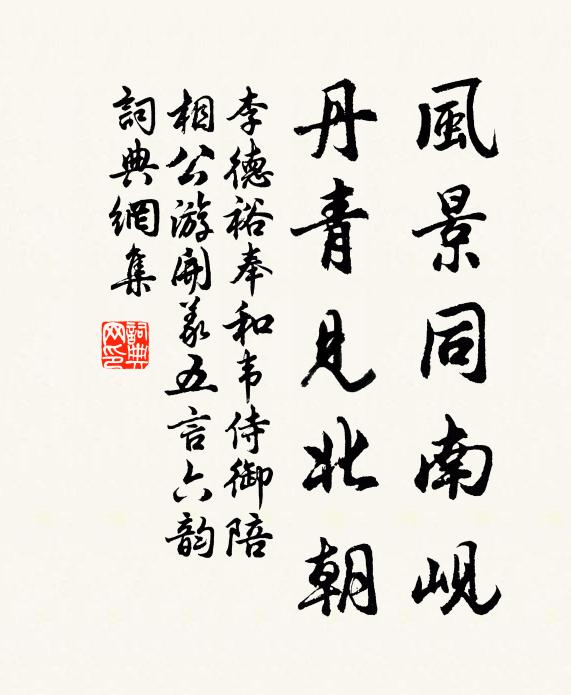 風景同南峴
丹青見北朝
李德裕奉和韦侍御陪
相公游開義五言六韵
詞典網集
詞典网印